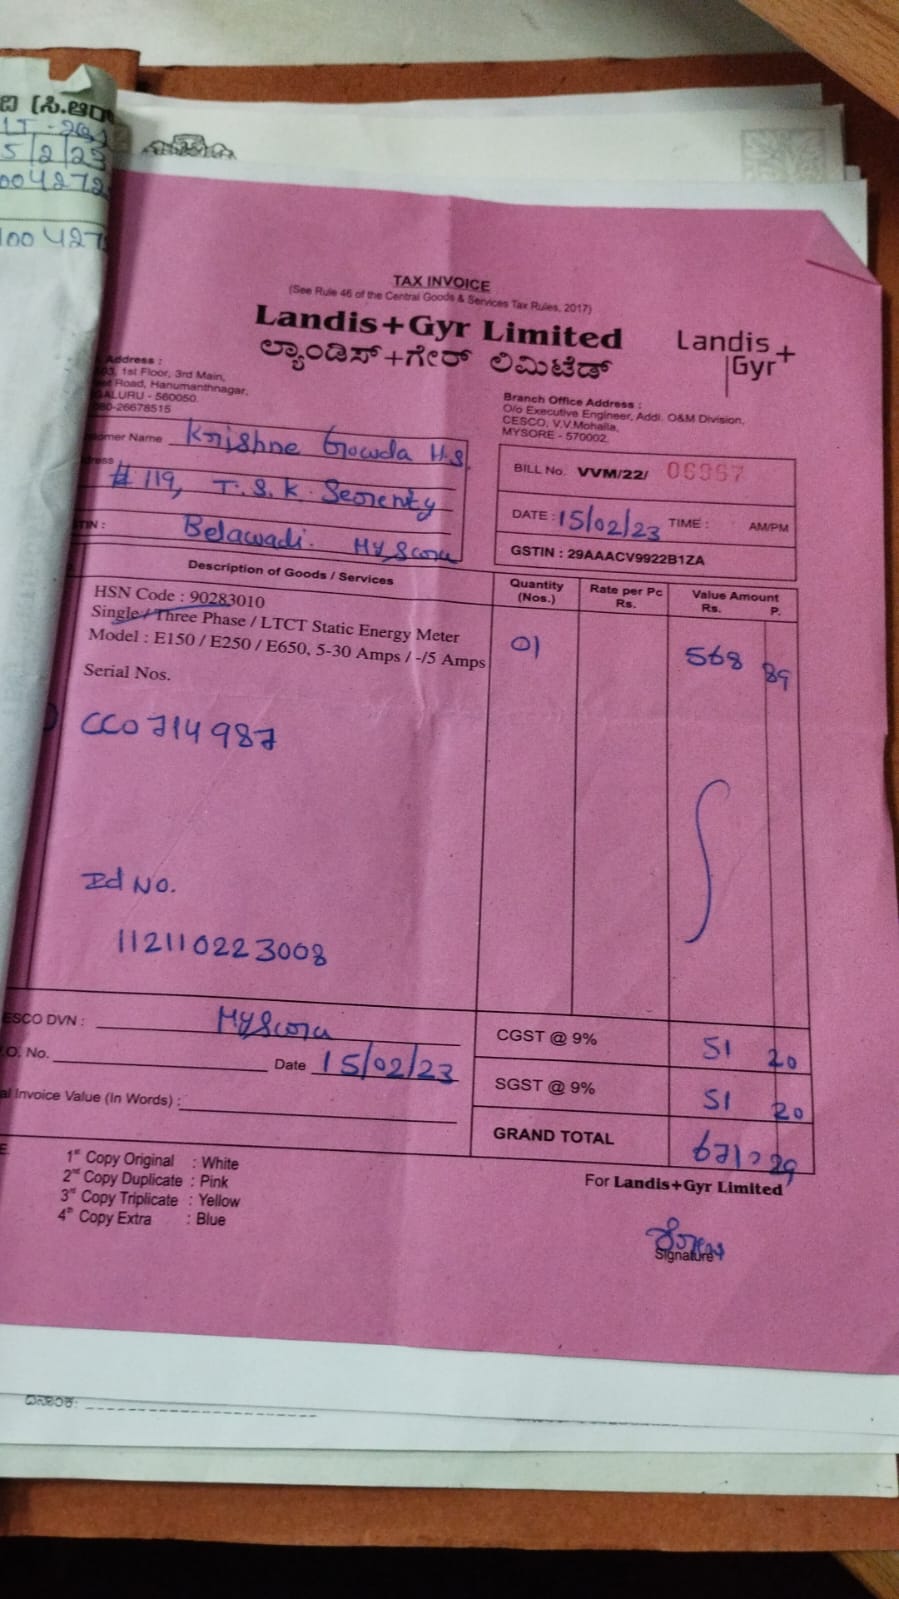 ದಿ (ಸಿ.ಆರ್
5/2/23
004272
1004272
TAX INVOICE
(See Rule 46 of the Central Goods & Services Tax Rules, 2017)
Landis+Gyr Limited
ಲ್ಯಾಂಡಿಸ್+ಗೇರ್ ಲಿಮಿಟೆಡ್
Landis+
Gyr
Address :
1st Floor, 3rd Main,
Road, Hanumanthnagar,
GALURU - 560050.
080-26678515
Branch Office Address :
O/o Executive Engineer, Addl. O&M Division,
CESCO, V.V.Mohalla,
MYSORE - 570002.
omer Name Krishne Gowda H.S.
dress #119, T.S.K. Seorenity
TIN : Belawadi. Myscoru
BILL No. VVM/22/ 06967
DATE : 15/02/23 TIME : AM/PM
GSTIN : 29AAACV9922B1ZA
Description of Goods / Services Quantity (Nos.) Rate per Pc Rs. Value Amount Rs. P.
HSN Code : 90283010
Single / Three Phase / LTCT Static Energy Meter
Model : E150 / E250 / E650, 5-30 Amps / -/5 Amps 01 568 89
Serial Nos.
CC0714987
Id No.
112110223008
ESCO DVN : Myscoru
.O. No. Date 15/02/23
al Invoice Value (In Words) :
CGST @ 9% 51 20
SGST @ 9% 51 20
GRAND TOTAL 671 29
1st Copy Original : White
2nd Copy Duplicate : Pink
3rd Copy Triplicate : Yellow
4th Copy Extra : Blue
For Landis+Gyr Limited
Signature
ದಿನಾಂಕ: